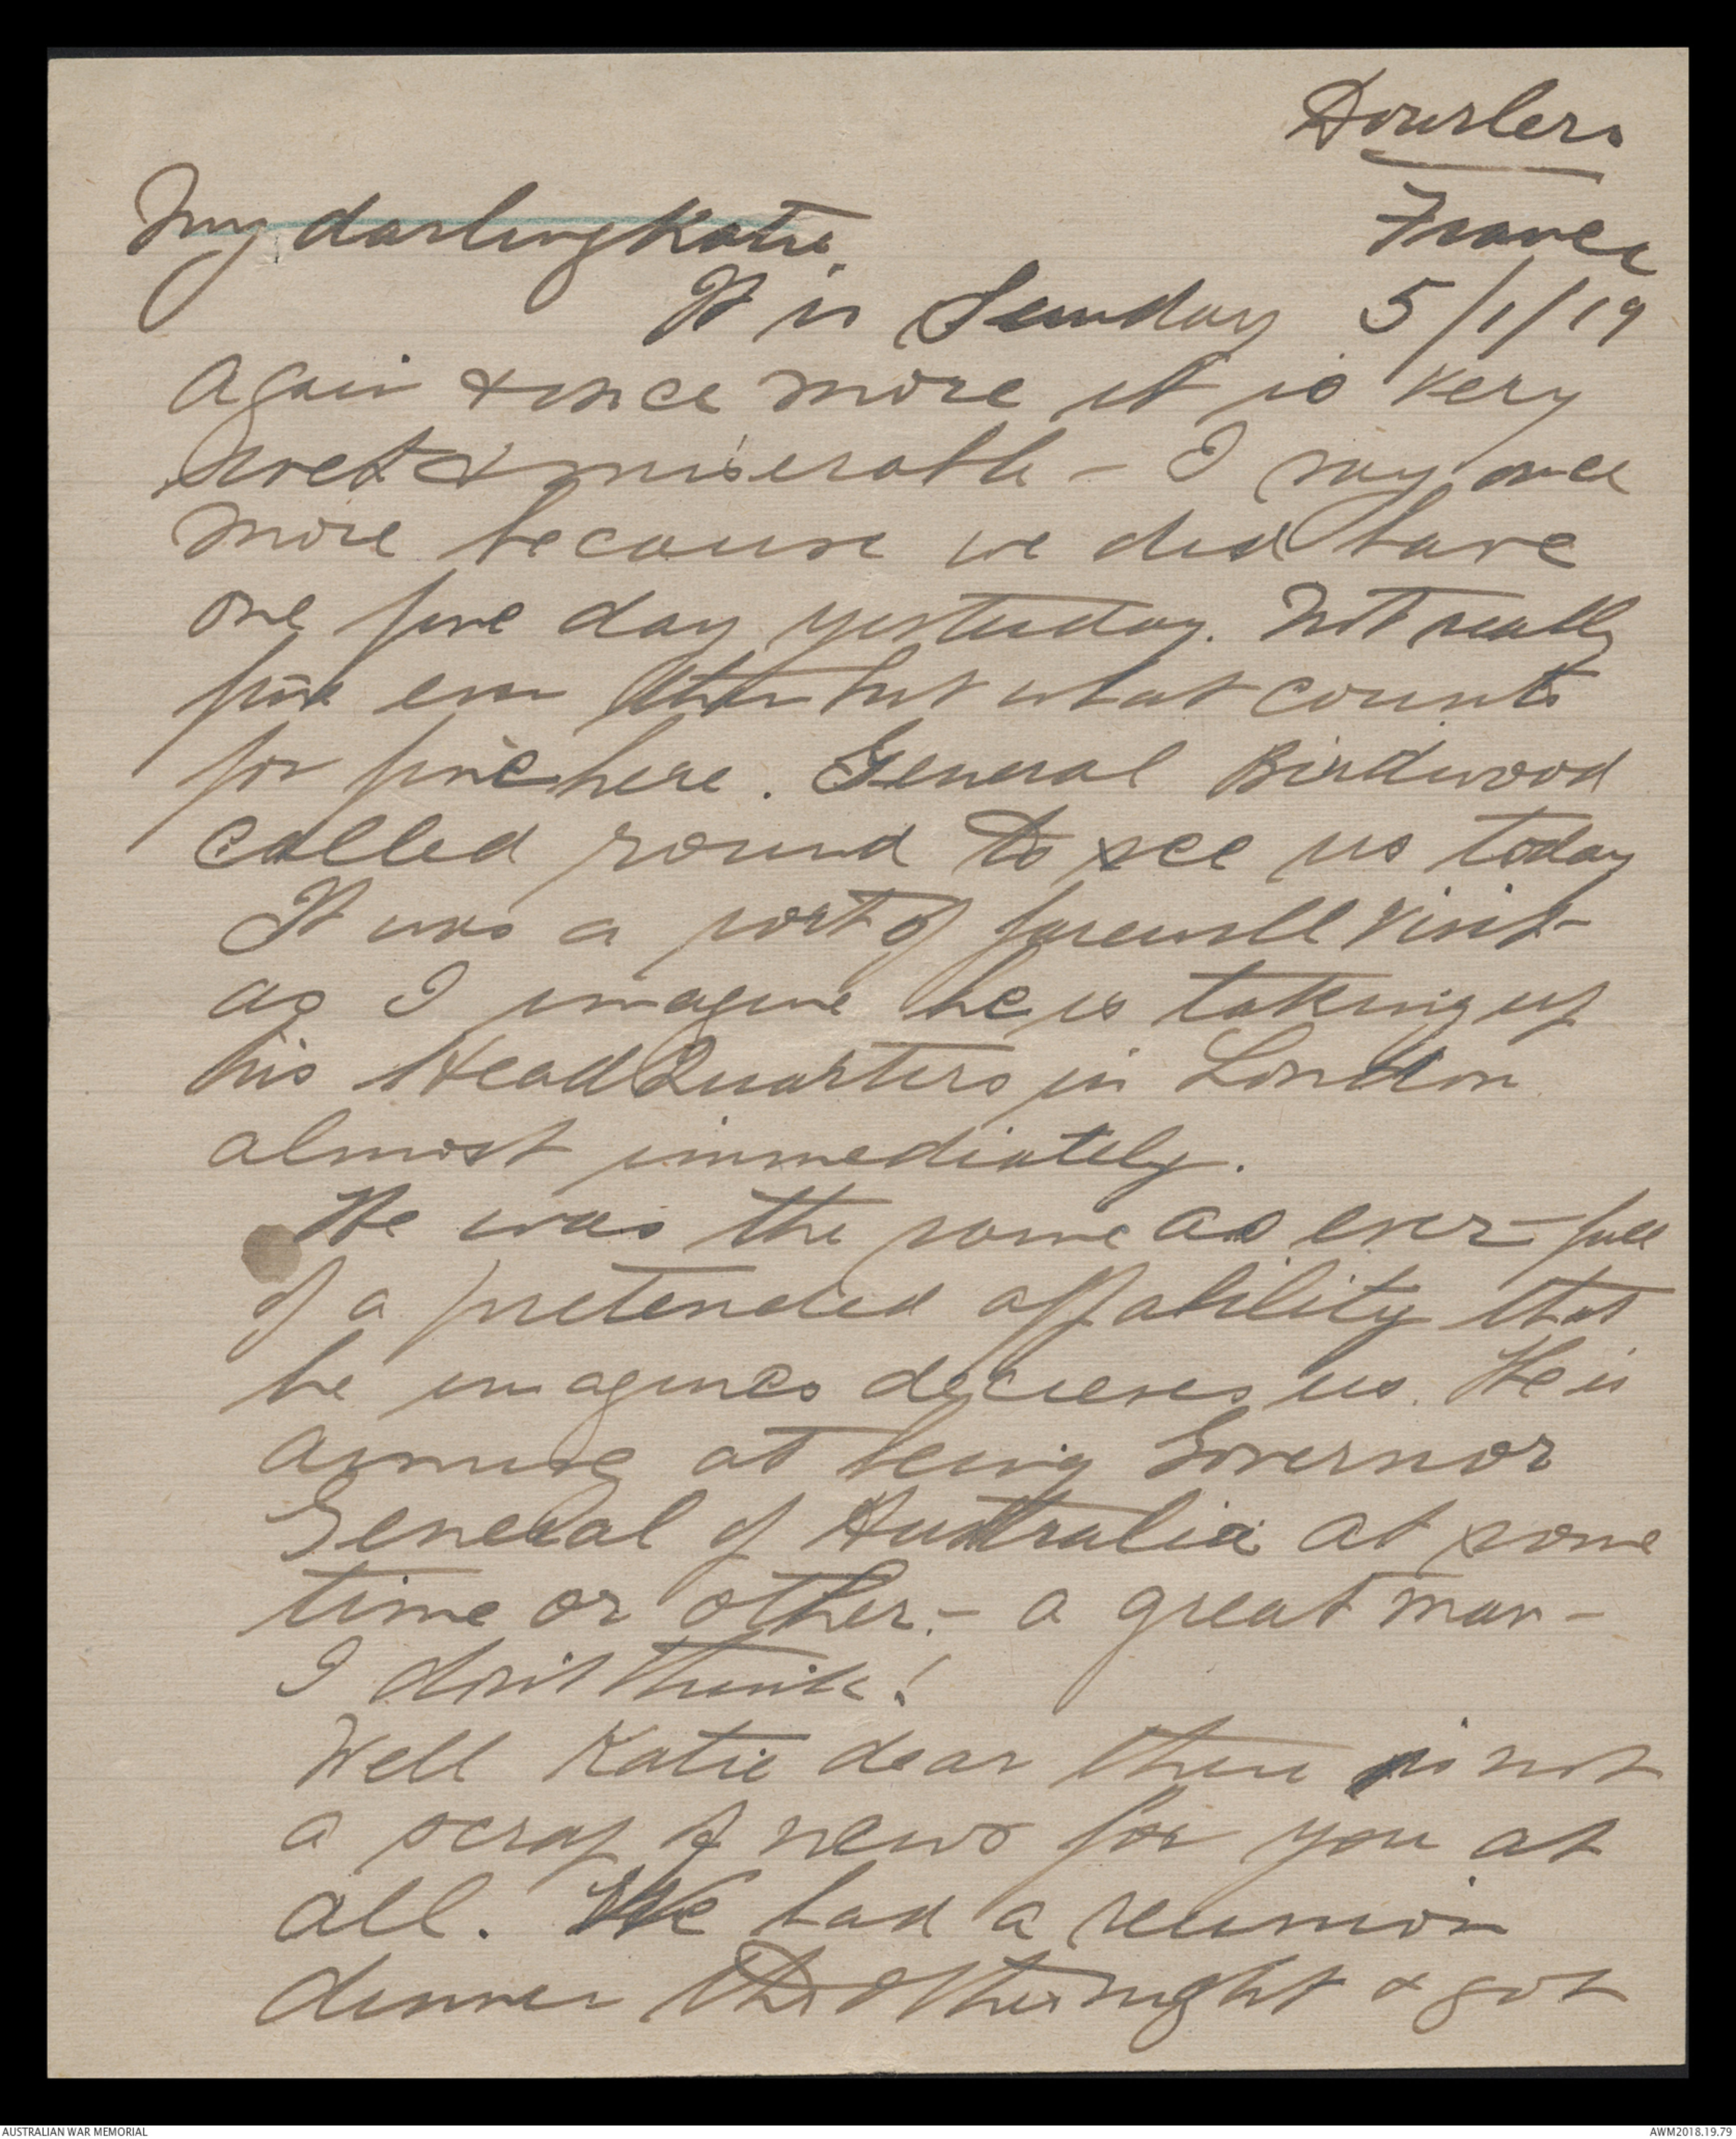 Dourlers
France
My darling Katie.
It is Sunday 5/1/19
again & once more it is very
wet & miserable - I say once
more because we did have
one fine day yesterday. Not really
fine even then but what counts
for fine here. General Birdwood
called round to see us today
It was a sort of farewell visit
as I imagine he is taking up
his Head Quarters in London
almost immediately.
He was the same as ever - full
of a pretended affability that
he imagines decieves us. He is
aiming at being Governor
General of Australia at some
time or other. - a great man -
I don't think!
Well Katie dear there is not
a scrap of news for you at
all. We had a reunion
dinner the other night & got
AUSTRALIAN WAR MEMORIAL
AWM2018.19.79